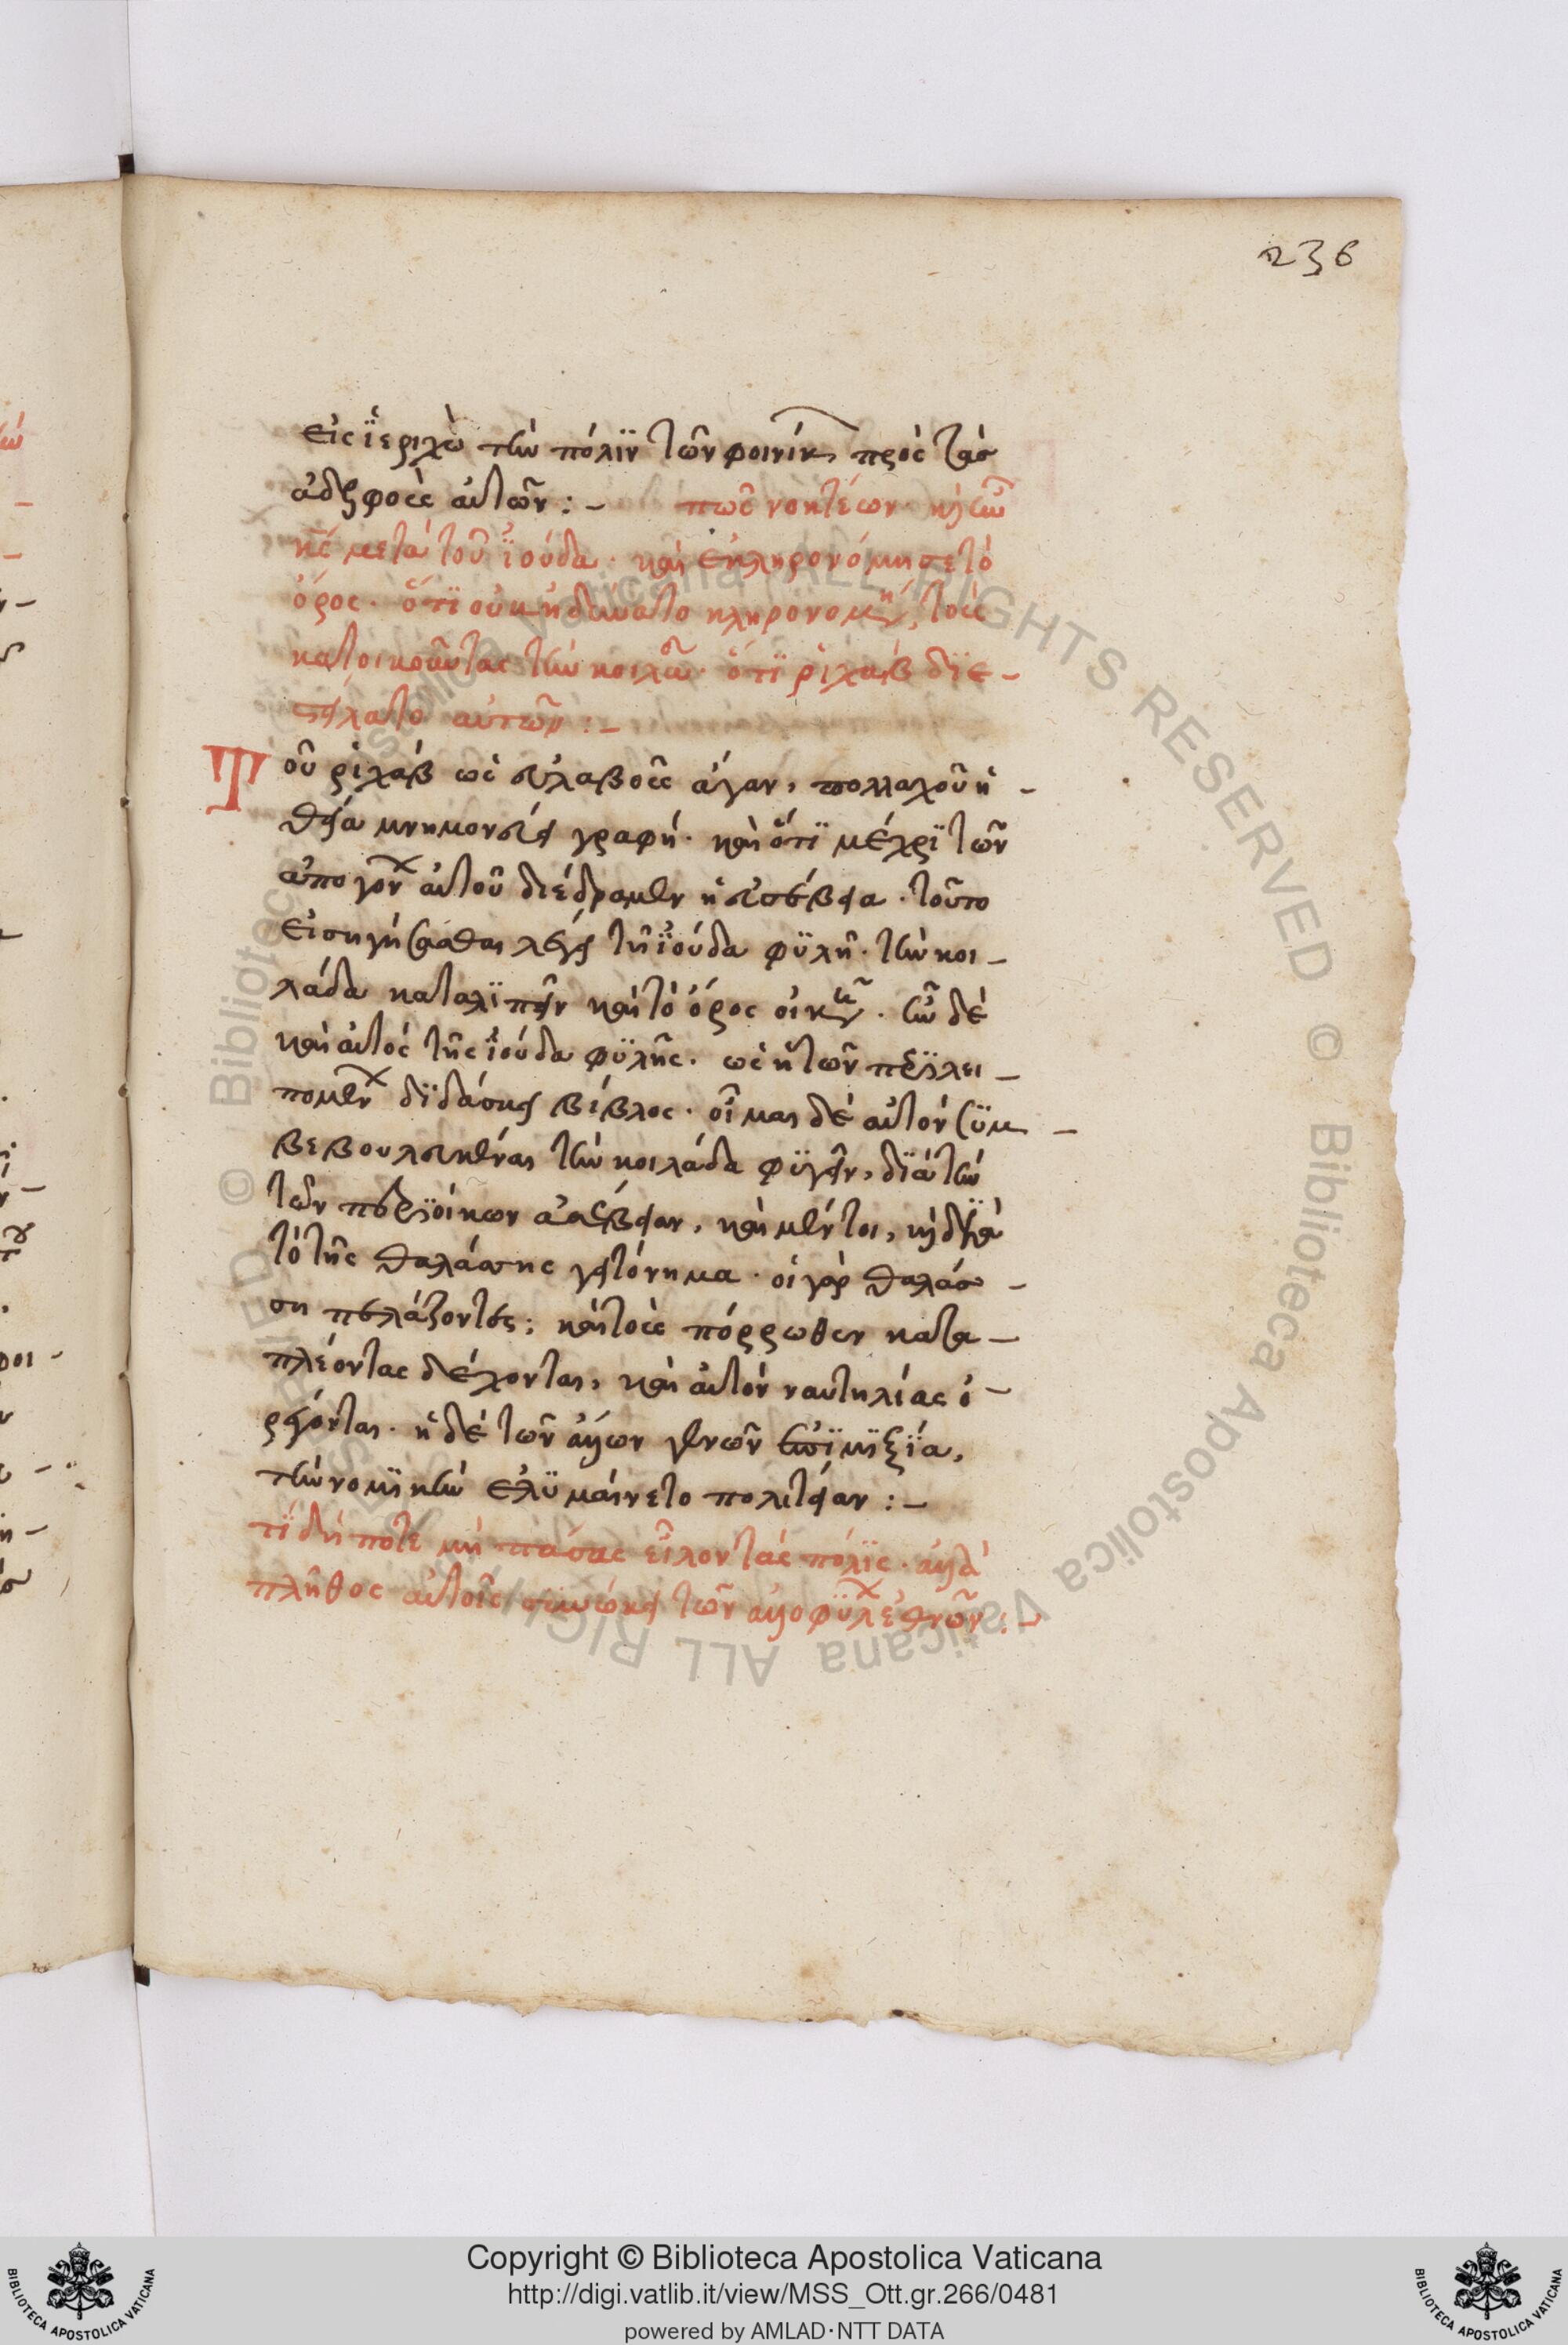 236
εἰς ἱεριχὼ τὴν πόλϊν τῶν φοινίκ, πρὸς τοὺσ
ἀδελφοὺς αὐτῶν : – πῶς νοητέων· κὴ ἦν
κς μετὰ τοῦ ϊούδα· καὶ ἐκληρονόμησε τὸ
ὄρος· ὅτϊ οὐκ ἠδύνατο κληρονομῆ, τοὺς
κατοικοῦντας τὴν κοιλα· ὅτϊ ῥιχὰβ δϊε –
στείλατο αὐτῶν : –
Τοῦ ῥιχάβ ὡς εὐλαβοῦς ἄγαν, πολλαχοῦ ἡ –
θεία μνημονεύει γραφή· καὶ ὅτϊ μέχρϊ τῶν
ἀπογον αὐτοῦ διέδραμεν ἡ εὐσέβεια· τοῦτο
εἰσηγήσασθαι λέγει τῇ ϊούδα φϋλῇ· τὴν κοι –
λάδα καταλϊπεῖν καὶ τὸ ὄρος οἰκ· ἦν δὲ
καὶ αὐτὸς τῆς ϊούδα φϋλῆς· ὡς ἡ τῶν παραλει –
πομεν δϊδάσκει βίβλος· οἶμαι δὲ αὐτὸν σϋμ –
βεβουλευκέναι τὴν κοιλάδα φϋγεῖν, δϊὰ τὴν
τῶν περϊοίκων ἀσέβειαν, καὶ μέντοι, κὴ δϊὰ
τὸ τῆς θαλάσσης γειτόνημα· οἱ γὰρ θαλάσ –
ση πελάζοντες; καὶ τοὺς πόρρωθεν κατα –
πλέοντας δέχονται, καὶ αὐτὸν ναυτηλίας ὀ –
ρέγονται· ἡ δὲ τῶν ἄλλων γενῶν ἐπϊμϊξϊα,
τὴν νομϊκὴν ἐλϋμαίνετο πολιτείαν : –
τϊ δή ποτε μὴ πάσας εἷλον τὰς πόλϊς· ἀλλὰ
πλῆθος αὐτοῖς συνώκει τῶν ἀλλοφϋλ ἐθνῶν : –
Copyright © Biblioteca Apostolica Vaticana
http://digi.vatlib.it/view/MSS_Ott.gr.266/0481
powered by AMLAD·NTT DATA